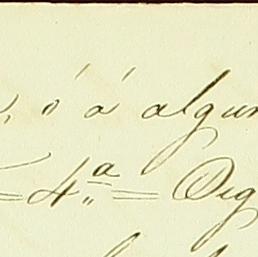 ó á algun
= 4.ª = Dig